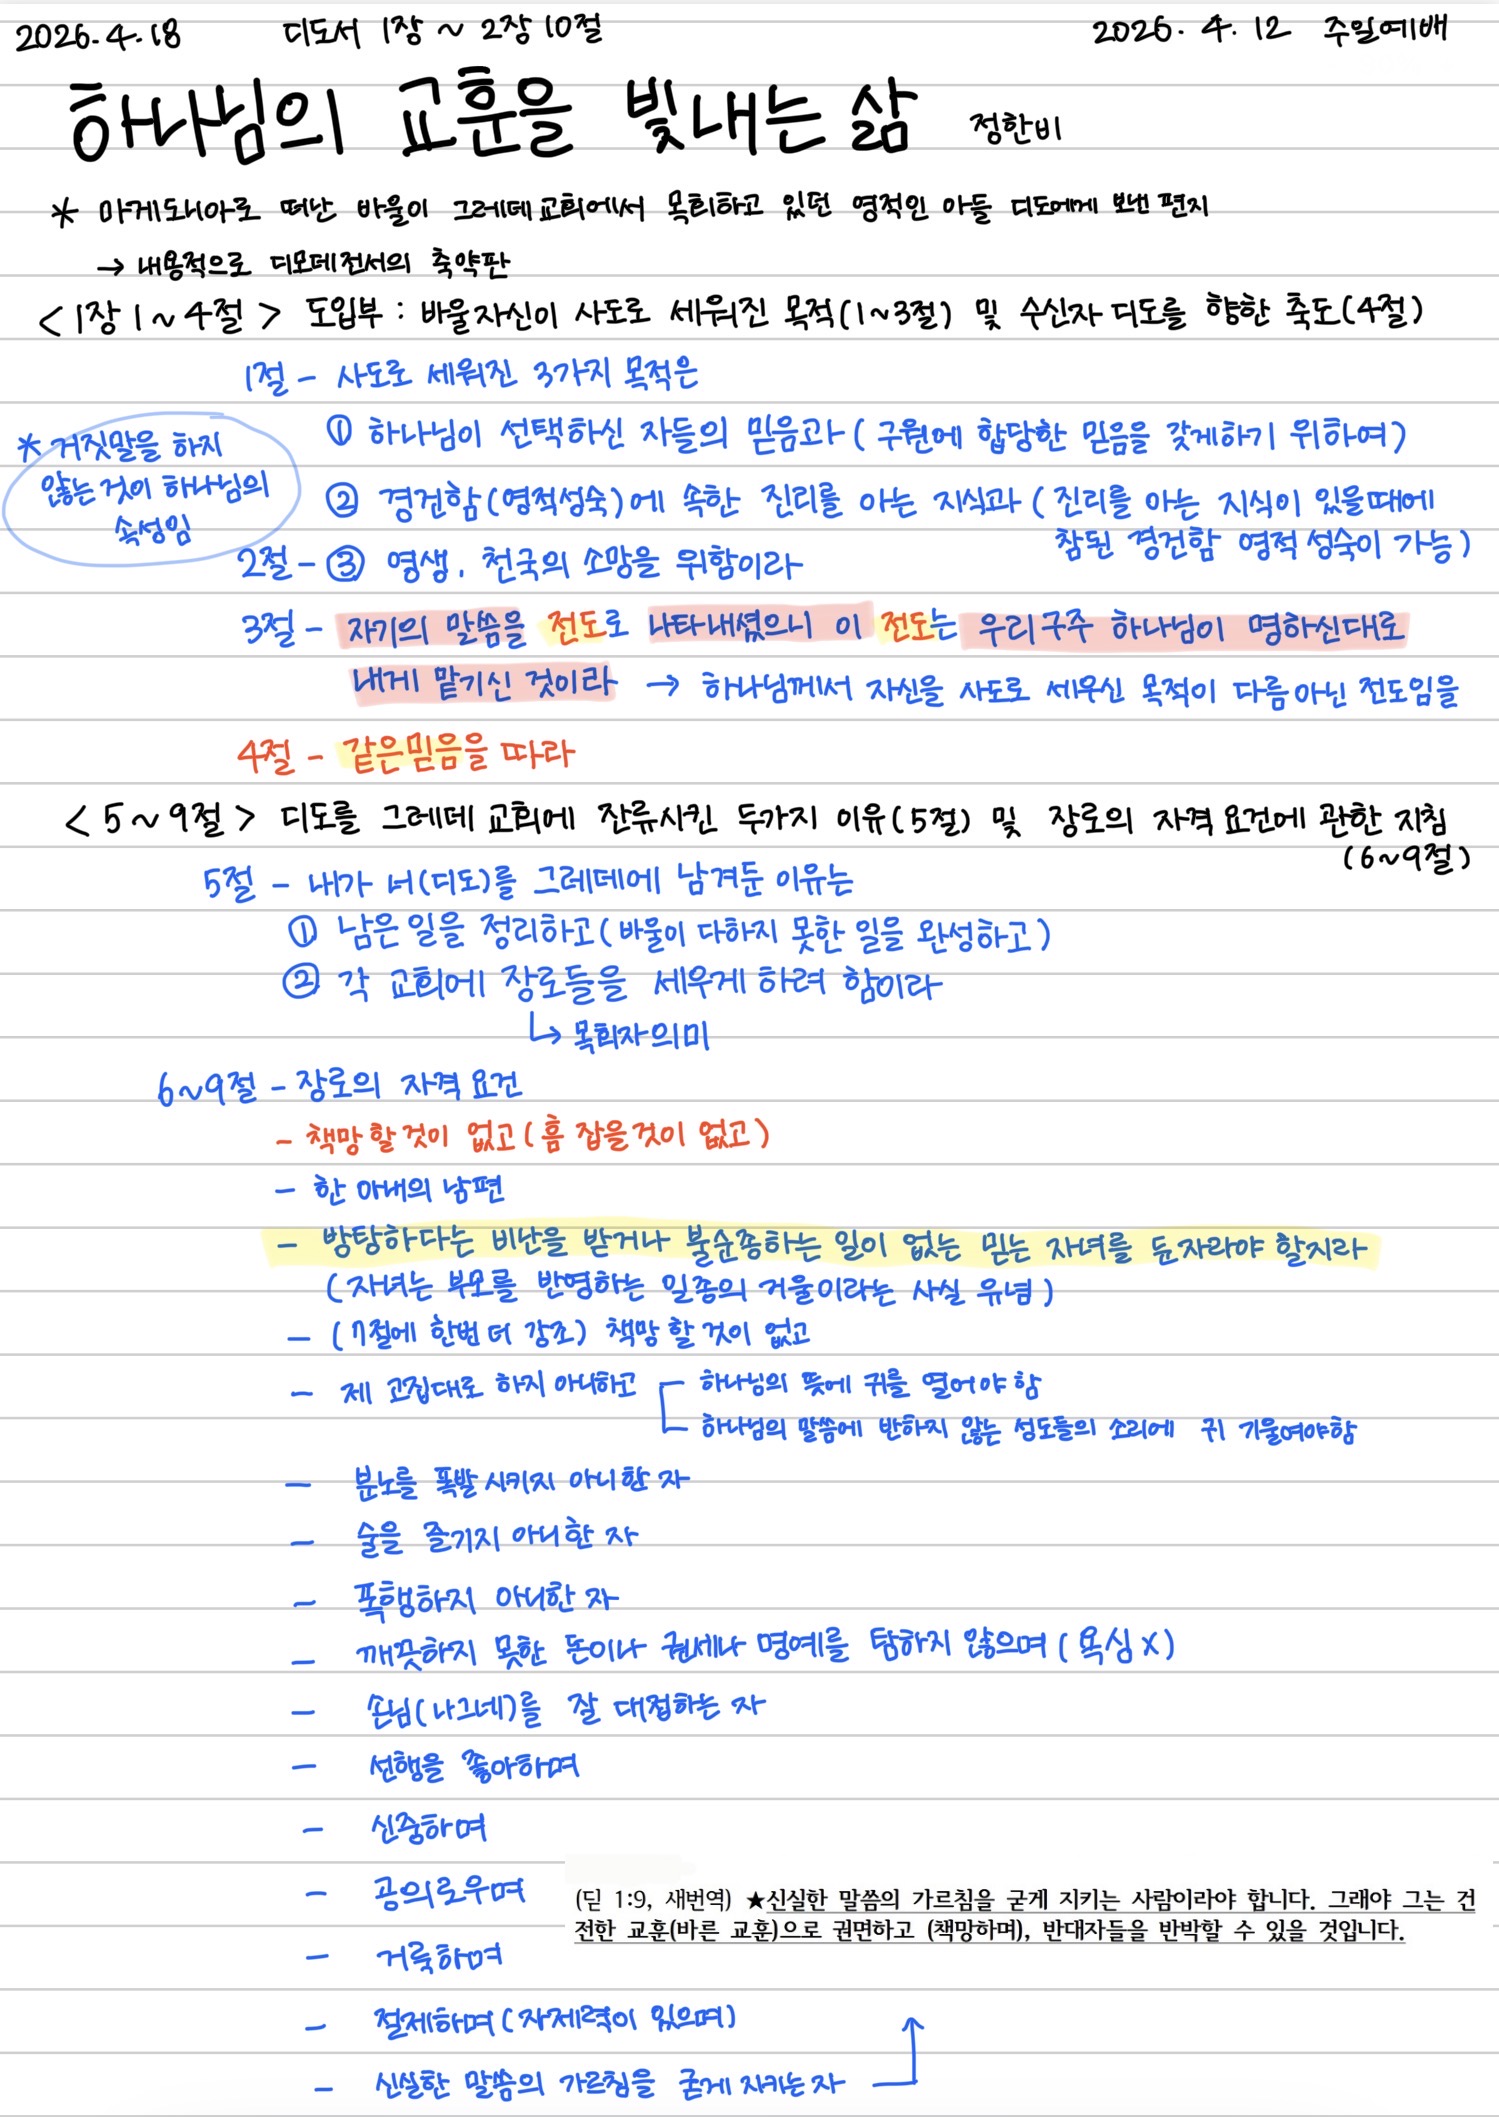 2026.4.18 디도서 1장 ~ 2장 10절 2026.4.12 주일예배
하나님의 교훈을 빛내는 삶 정한비
* 마게도니아로 떠난 바울이 그레데교회에서 목회하고 있던 영적인 아들 디도에게 보낸 편지
→ 내용적으로 디모데전서의 축약판
<1장 1~4절> 도입부 : 바울자신이 사도로 세워진 목적(1~3절) 및 수신자 디도를 향한 축도(4절)
1절 - 사도로 세워진 3가지 목적은
① 하나님이 선택하신 자들의 믿음과 (구원에 합당한 믿음을 갖게하기 위하여)
* 거짓말을 하지
않는 것이 하나님의
속성임
② 경건함(영적성숙)에 속한 진리를 아는 지식과 (진리를 아는 지식이 있을때에
참된 경건함 영적 성숙이 가능)
2절 - ③ 영생, 천국의 소망을 위함이라
3절 - 자기의 말씀을 전도로 나타내셨으니 이 전도는 우리구주 하나님이 명하신대로
내게 맡기신 것이라 → 하나님께서 자신을 사도로 세우신 목적이 다름아닌 전도임을
4절 - 같은믿음을 따라
<5~9절> 디도를 그레데 교회에 잔류시킨 두가지 이유(5절) 및 장로의 자격요건에 관한 지침
(6~9절)
5절 - 내가 너(디도)를 그레데에 남겨둔 이유는
① 남은 일을 정리하고(바울이 다하지 못한 일을 완성하고)
② 각 교회에 장로들을 세우게 하려 함이라
↳ 목회자의미
6~9절 - 장로의 자격 요건
- 책망할것이 없고(흠 잡을것이 없고)
- 한 아내의 남편
- 방탕하다는 비난을 받거나 불순종하는 일이 없는 믿는 자녀를 둔자라야 할지라
(자녀는 부모를 반영하는 일종의 거울이라는 사실 유념)
- (7절에 한번 더 강조) 책망할것이 없고
- 제 고집대로 하지 아니하고 하나님의 뜻에 귀를 열어야 함
하나님의 말씀에 반하지 않는 성도들의 소리에 귀 기울여야함
- 분노를 폭발시키지 아니한 자
- 술을 즐기지 아니한 자
- 폭행하지 아니한 자
- 깨끗하지 못한 돈이나 권세나 명예를 탐하지 않으며(욕심X)
- 손님(나그네)를 잘 대접하는 자
- 선행을 좋아하며
- 신중하며
- 공의로우며
(딛 1:9, 새번역) ★신실한 말씀의 가르침을 굳게 지키는 사람이라야 합니다. 그래야 그는 건
전한 교훈(바른 교훈)으로 권면하고 (책망하며), 반대자들을 반박할 수 있을 것입니다.
- 거룩하며
- 절제하며(자제력이 있으며)
- 신실한 말씀의 가르침을 굳게 지키는자